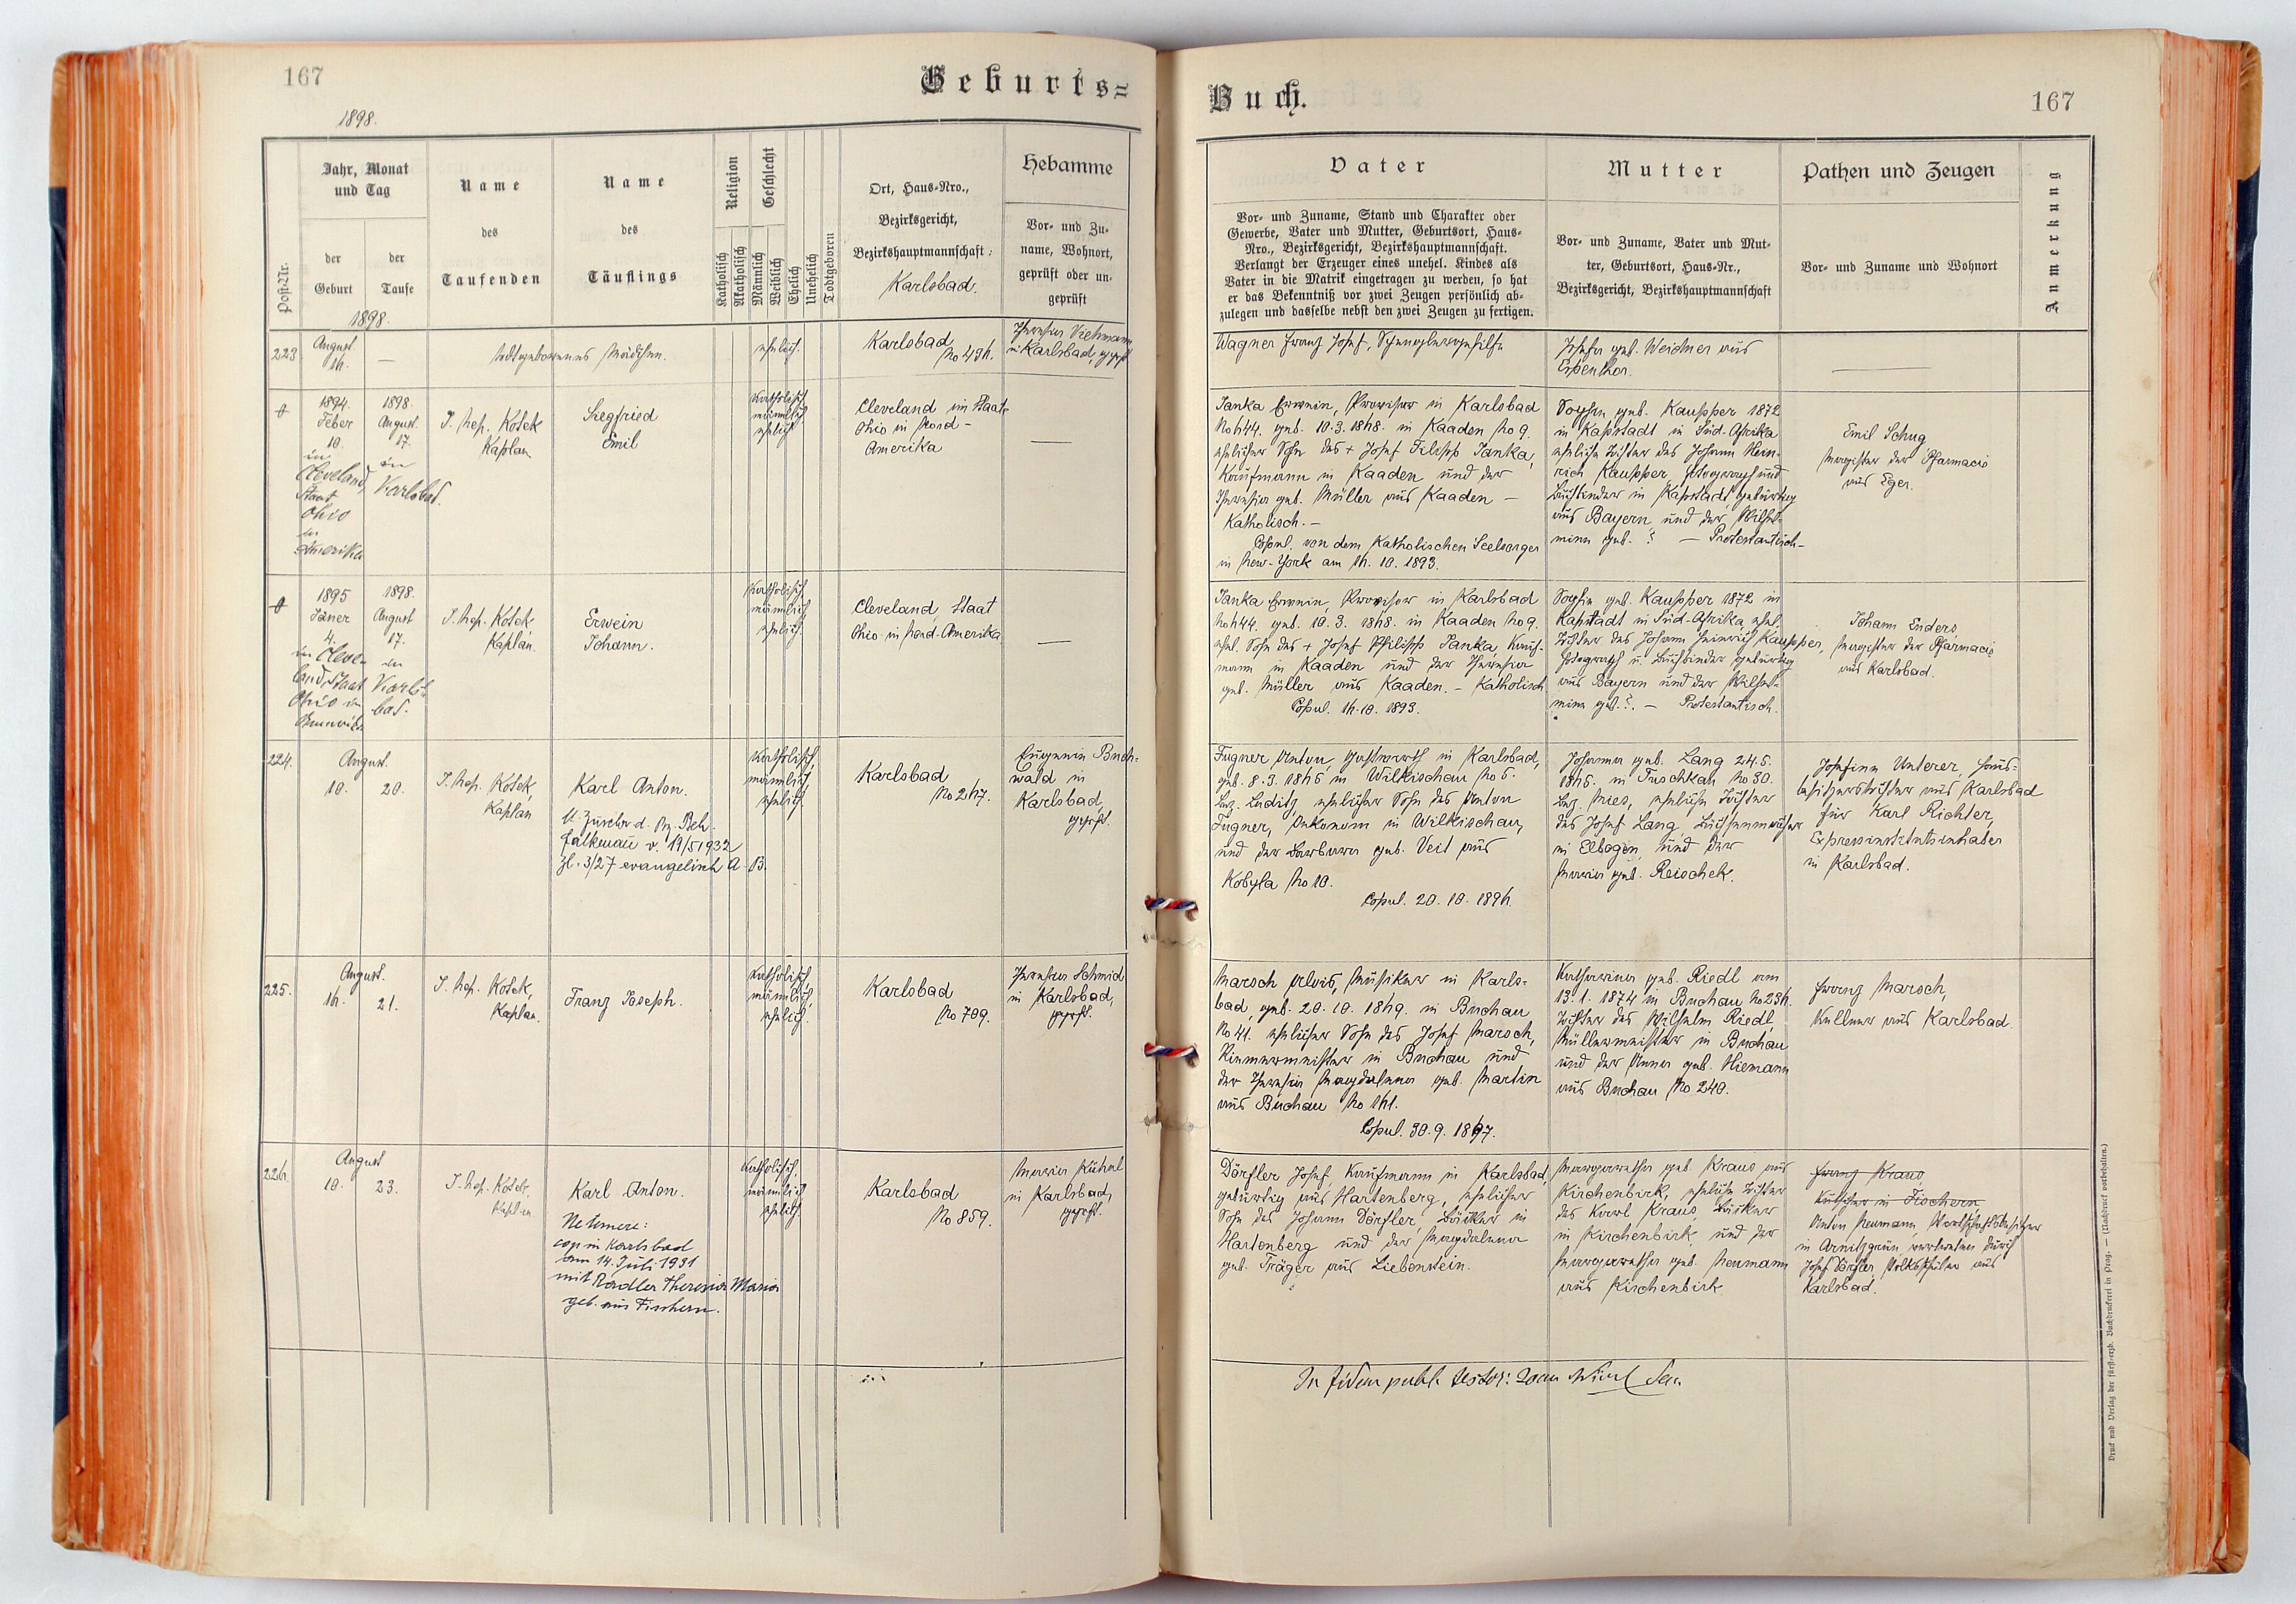 167
Geburts=
1898.
Post-Nr.
Jahr, Monat
und Tag
der
Geburt
der
Taufe
1898.
Name
des
Taufenden
Name
des
Täuflings
Religion
Katholisch
Akatholisch
Geschlecht
Männlich
Weiblich
Ehelich
Unehelich
Todtgeboren
Ort, Haus-Nro.,
Bezirksgericht,
Bezirkshauptmannschaft:
Karlsbad.
Hebamme
Vor- und Zu-
name, Wohnort,
geprüft oder un-
geprüft
223.
August
16.
—
todtgeborenes Mädchen.
ehelich.
Karlsbad
No 496.
Theresia Viehmann
in Karlsbad, gepft.
1894.
Feber
10.
in
Cleveland,
Staat
Ohio
in
Amerika
1898.
August
17.
in
Karlsbad.
J. Nep. Kosek
Kaplan
Siegfried
Emil
katholisch
männlich
ehelich
Cleveland im Staate
Ohio in Nord-
Amerika
—
1895
Jäner
4.
in Cleve-
land, Staat
Ohio in
Amerika
1898.
August
17.
in
Karls-
bad.
J. Nep. Kosek
Kaplan.
Erwein
Johann.
katholisch
männlich
ehelich.
Cleveland, Staat
Ohio in Nord-Amerika
—
224.
August.
10.
20.
J. Nep. Kosek,
Kaplan
Karl Anton.
lt. Zuschr. d. Bz. Beh.
Falkenau v. 19/5 1932
Zl. 3/27 evangelisch A. B.
katholisch,
männlich,
ehelich.
Karlsbad
No 267.
Eugenie Buch-
wald in
Karlsbad,
gepft.
225.
August.
16.
21.
J. Nep. Kosek,
Kaplan.
Franz Joseph.
katholisch,
männlich,
ehelich.
Karlsbad
No 709.
Theresia Schmid
in Karlsbad,
gepft.
226.
August
10.
23.
J. Nep. Kosek,
Kaplan
Karl Anton.
Ne temere:
cop. in Karlsbad
am 14. Juli 1931
mit Radler Theresia Maria
geb. aus Fischern.
katholisch,
männlich
ehelich.
Karlsbad
No 859.
Maria Kühnl
in Karlsbad,
gepft.
Buch.
167
Vater
Vor- und Zuname, Stand und Charakter oder
Gewerbe, Vater und Mutter, Geburtsort, Haus-
Nro., Bezirksgericht, Bezirkshauptmannschaft.
Verlangt der Erzeuger eines unehel. Kindes als
Vater in die Matrik eingetragen zu werden, so hat
er das Bekenntniß vor zwei Zeugen persönlich ab-
zulegen und dasselbe nebst den zwei Zeugen zu fertigen.
Mutter
Vor- und Zuname, Vater und Mut-
ter, Geburtsort, Haus-Nr.,
Bezirksgericht, Bezirkshauptmannschaft
Pathen und Zeugen
Vor- und Zuname und Wohnort
Anmerkung
Wagner Franz Josef, Spenglergehilfe
Josefa geb. Weidner aus
Espenthor.
Janka Erwein, Provisor in Karlsbad
No 644. geb. 10.3.1868. in Kaaden No 9.
ehelicher Sohn des + Josef Filipp Janka,
Kaufmann in Kaaden und der
Theresia geb. Müller aus Kaaden —
Katholisch. —
Copul. von dem katholischen Seelsorger
in New-York am 16. 10. 1893.
Sophie geb. Kaupper 1872
in Kapstadt in Süd-Afrika
eheliche Tochter des Johann Hein-
rich Kaupper Fotograf und
Buchbinder in Kapstadt, gebürtig
aus Bayern und der Wilhel-
mine geb. ? — Protestantisch —
Emil Schug
Magister der Pharmacie
aus Eger.
Janka Erwein, Provisor in Karlsbad
No 644. geb. 10.3. 1868. in Kaaden No 9.
ehel. Sohn des + Josef Philipp Janka, Kauf-
mann in Kaaden und der Theresia
geb. Müller aus Kaaden. — Katholisch
Copul. 16.10. 1893.
Sophie geb. Kaupper 1872 in
Kapstadt in Süd-Afrika, ehel.
Tochter des Johann Heinrich Kaupper,
Fotograf u. Buchbinder gebürtig
aus Bayern und der Wilhel-
mine geb. ?. — Protestantisch.
Johann Enders,
Magister der Pharmacie
aus Karlsbad.
Fugner Anton, Gastwirth in Karlsbad,
geb. 8.3.1865 in Wilkischau No 5.
Bez. Luditz ehelicher Sohn des Anton
Fugner, Oekonom in Wilkischau,
und der Barbara geb. Veit aus
Kobyla No 10.
Copul. 20. 10. 1896.
Johanna geb. Lang 24.5.
1865. in Tuschkau No 30.
Bez. Mies, eheliche Tochter
des Josef Lang, Büchsenmacher
in Elbogen, und der
Maria geb. Reischek.
Josefine Unterer, Haus-
besitzerstochter aus Karlsbad
für Karl Richter,
Expressinstitutsinhaber
in Karlsbad.
Marsch Alois, Musiker in Karls-
bad, geb. 20.10.1869. in Buchau
No 41. ehelicher Sohn des Josef Marsch,
Riemermeister in Buchau und
der Theresia Magdalena geb. Martin
aus Buchau No 161.
Copul. 30. 9. 1897.
Katharina geb. Riedl am
13.1. 1874 in Buchau No 236.
Tochter des Wilhelm Riedl,
Müllermeister in Buchau
und der Anna geb. Hiemann
aus Buchau No 240.
Franz Marsch,
Kellner aus Karlsbad.
Dörfler Josef, Kaufmann in Karlsbad,
gebürtig aus Hartenberg, ehelicher
Sohn des Johann Dörfler, Bäcker in
Hartenberg und der Magdalena
geb. Träger aus Liebenstein.
Margaretha geb. Kraus aus
Kirchenbirk, eheliche Tochter
des Karl Kraus, Bäcker
in Kirchenbirk, und der
Margaretha geb. Neumann
aus Kirchenbirk
Franz Kraus,
Kutscher in Fischern,
Anton Neumann, Wirtschaftsbesitzer
in Arnitzgrün, vertreten durch
Josef Dörfler Volksschüler aus
Karlsbad.
In fidem publ. testor:
Druck und Verlag der fürst-erzb. Buchdruckerei in Prag. — (Nachdruck vorbehalten.)